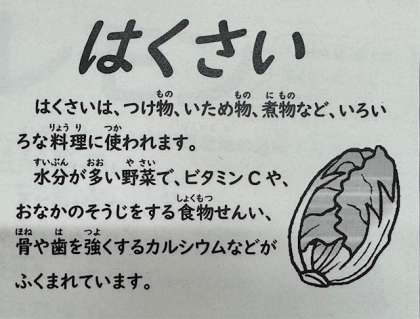 はくさい
はくさいは、つけ物、いため物、煮物など、いろい
ろな料理に使われます。
水分が多い野菜で、ビタミンCや、
おなかのそうじをする食物せんい、
骨や歯を強くするカルシウムなどが
ふくまれています。